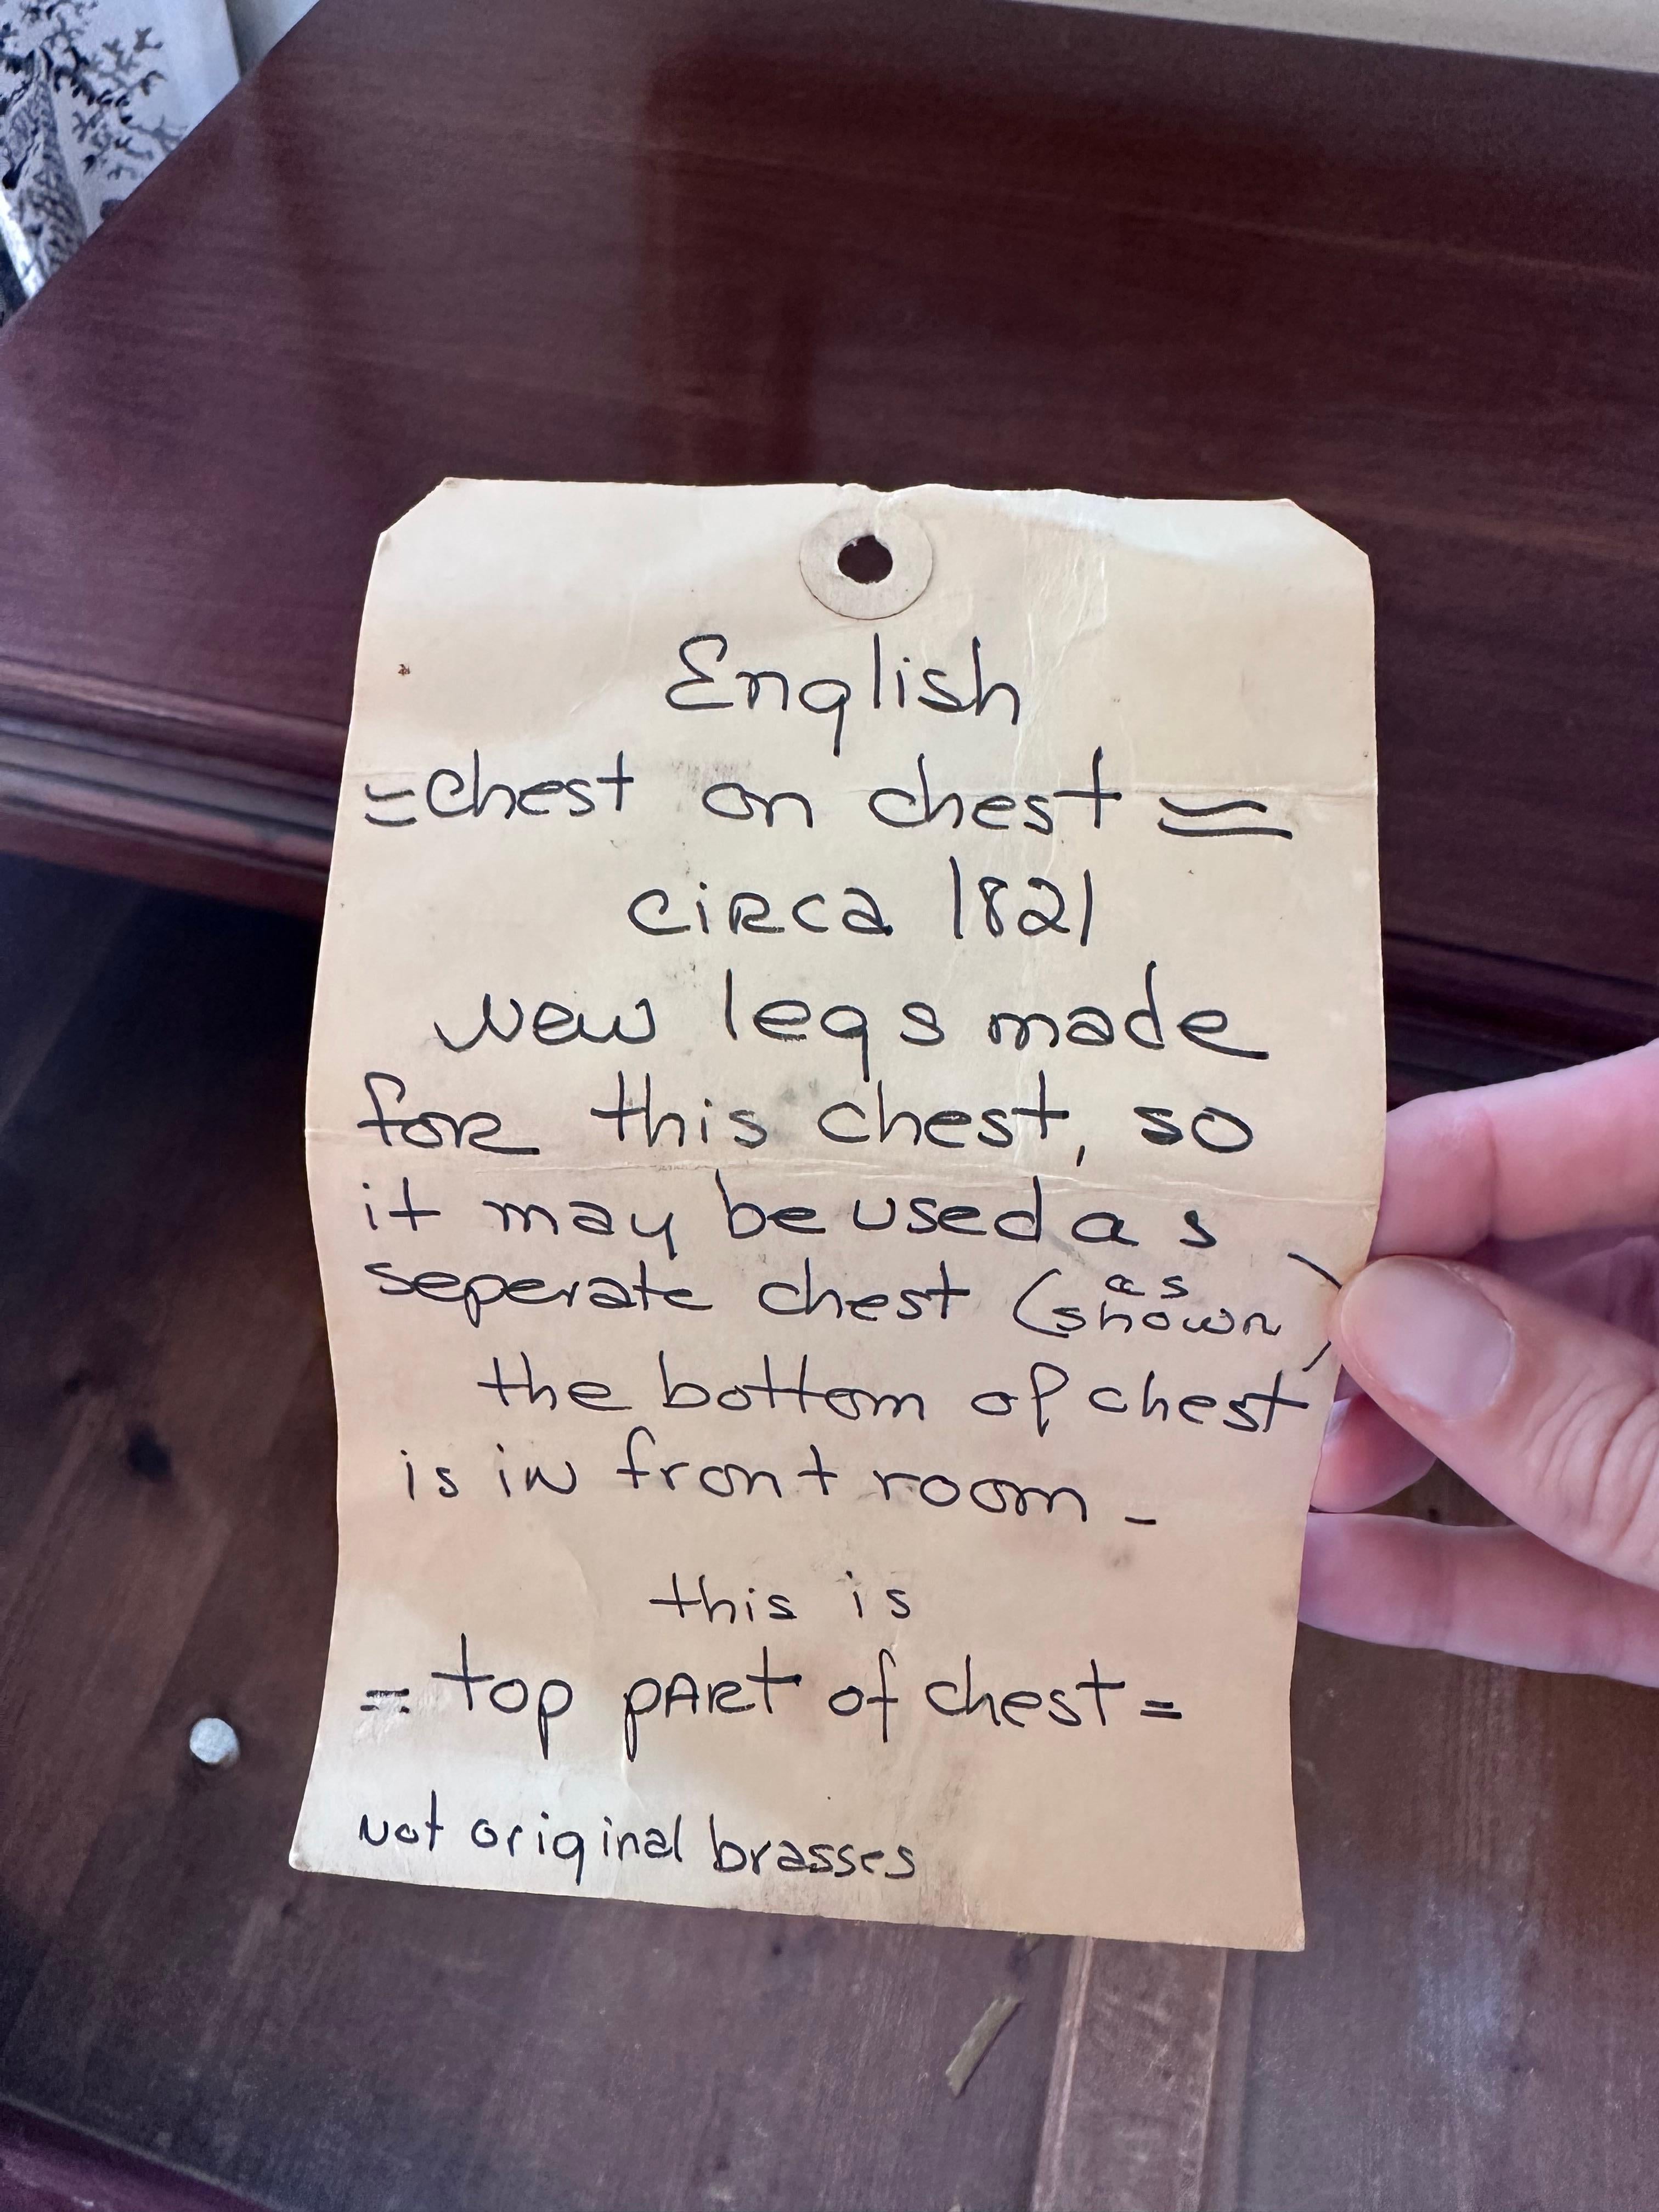 English
=chest on chest=
circa 1821
New legs made
for this chest, so
it may be used as
seperate chest (as shown)
the bottom of chest
is in front room -
this is
= top part of chest =
Not original brasses